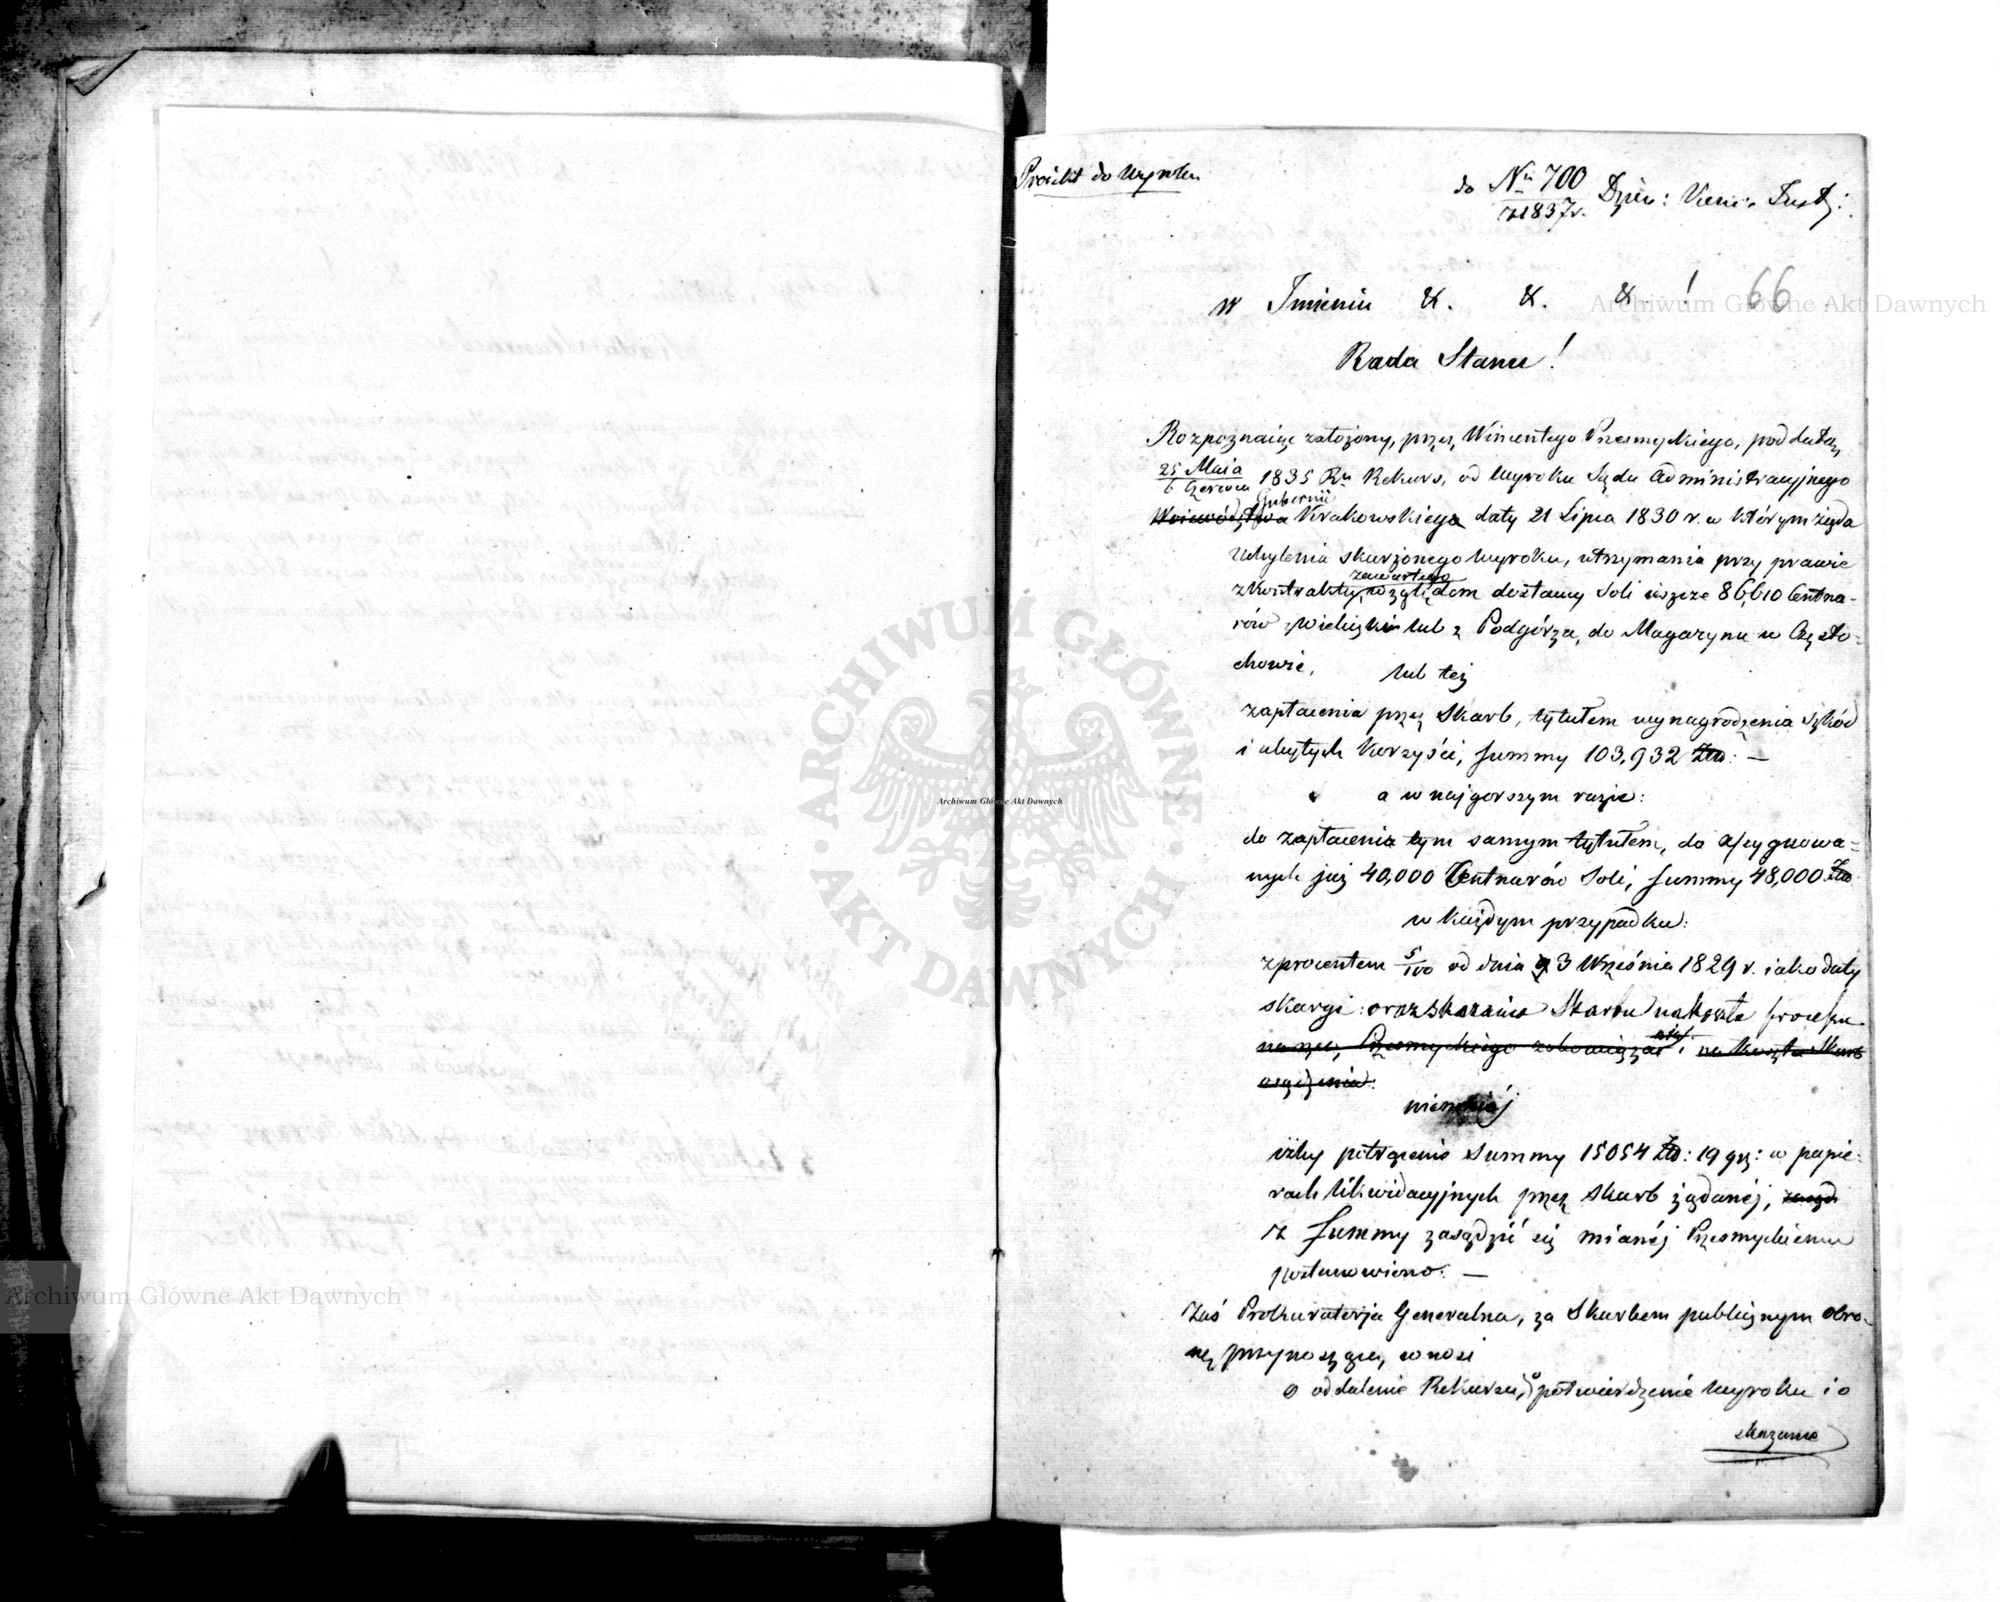 Proiekt do Wyroku
do Nru 700 Dzien: Vice: Justj:
z 1837 r.
66
w Imieniu &. &. & !
Rada Stanu!
Rozpoznaiąc założony, przez Wincentego Przesmyckiego, pod datą
25 Maia
6 Czerwca 1835 Ru Rekurs, od Wyroku Sądu Administracyjnego
Gubernii
Woiewództwa Krakowskiego daty 21 Lipca 1830 r. w którym żąda
Uchylenia skarżonego wyroku, utrzymania przy prawie
zawartego
z Kontraktu, względem dostawy Soli ieszcze 86,610 Centna-
rów z Wieliczki lub z Podgórza, do Magazynu w Często-
chowie,
lub też
zapłacenia przez Skarb, tytułem wynagrodzenia szkód
i ubytych Korzyści, Summy 103,932 Złp: —
a w najgorszym razie:
do zapłacenia tym samym tytułem, do assygnowa-
nych już 40,000 Centnarów Soli, Summy 48,000 Złp.
w każdym przypadku:
z procentem 5/100 od dnia 3 Września 1829 r. iako daty
skargi: oraz skazania Skarbu na koszta processu
na rzecz Przesmyckiego na koszta Skarb
osądzenia:
niemniéj
iżby potrącenie Summy 15054 Złp: 19 gr: w papie-
rach likwidacyjnych przez Skarb żądanéj,
z Summy zasądzić się mianéj Przesmyckiemu
postanowiono: —
Zaś Prokuratorja Generalna, za Skarbem publicznym obro-
nę przynosząca, wnosi
o oddalenie Rekursu, o potwierdzenie Wyroku i o
skazanie
Archiwum Główne Akt Dawnych
Archiwum Główne Akt Dawnych
Archiwum Główne Akt Dawnych
ARCHIWUM GŁÓWNE
AKT DAWNYCH